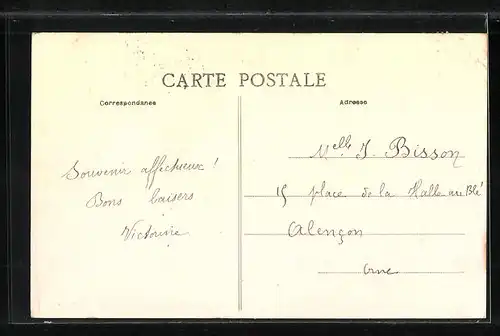 CARTE POSTALE
Correspondance
Adresse
Souvenir affectueux !
Bons baisers
Victorine
Melle J. Bisson
15 place de la Halle au Blé
Alençon
Orne